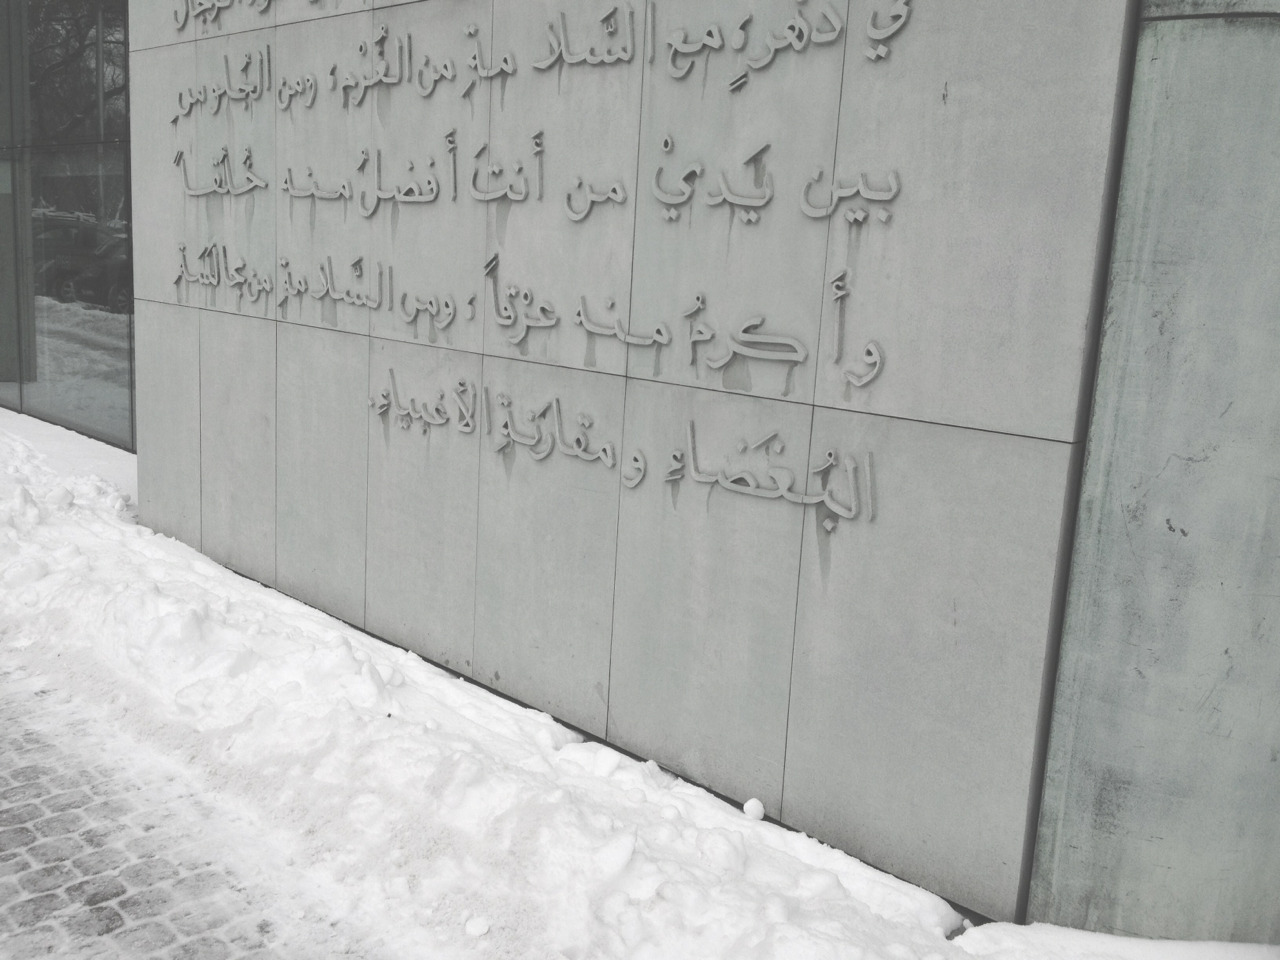 الرجال
في دهرٍ، مع السَّلامة من الغُرْم، ومن الجُلوس
بين يَديْ من أنتَ أفضلُ منه خُلُقاً
وأكرمُ منه عرْقاً، ومن السَّلامة من مجالسَة
البُغَضاء ومقارنَةِ الأغبياء.